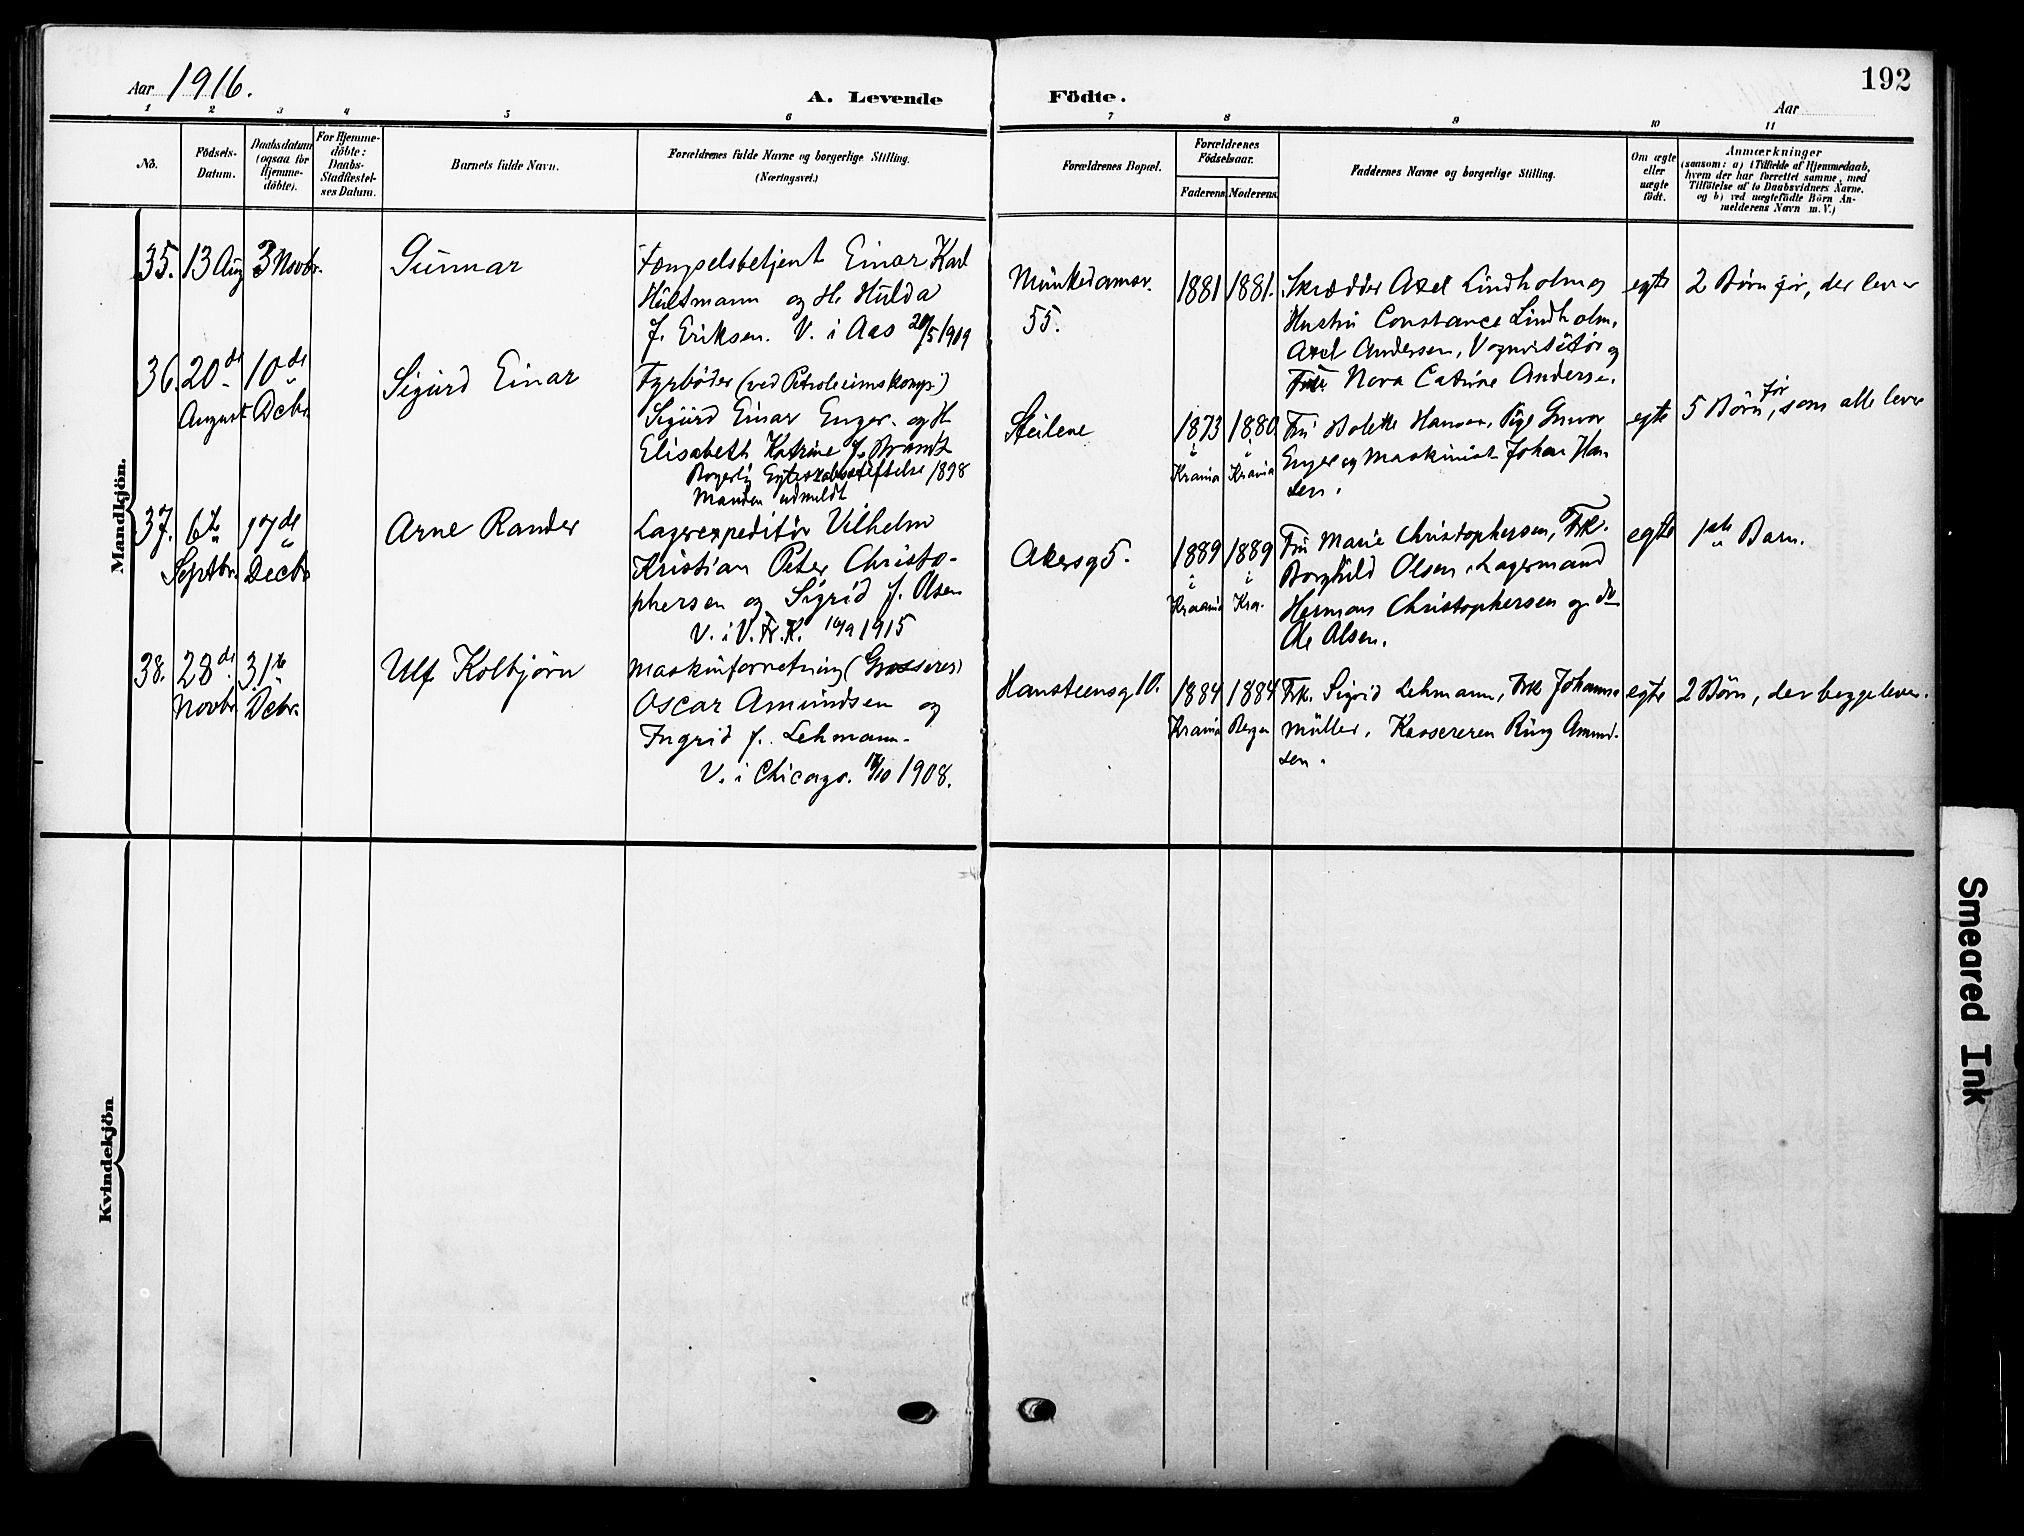 Aar 1916.
A. Levende Födte.
192
Aar
1 2 3 4 5 6 7 8 9 10 11
Nö.
Födsels-
Datum.
Daabsdatum
(ogsaa for
Hjemme-
döbte).
For Hjemme-
döbte:
Daabs-
Stadfæstel-
ses Datum.
Barnets fulde Navn.
Forældrenes fulde Navne og borgerlige Stilling.
(Næringsvei.)
Forældrenes Bopæl.
Forældrenes
Födselsaar.
Faderens Moderens
Faddernes Navne og borgerlige Stilling.
Om ægte
eller
uægte
födt.
Anmærkninger
(saasom: a) i Tilfælde af Hjemmedaab,
hvem der har forrettet samme, med
Tilföielse af to Daabsvidners Navne.
og b) ved uægtefödte Börn An-
melderens Navn m. V.)
Mandkjön.
35. 13 Aug 3 Novbr.
Gunnar
Fængselsbetjent Einar Karl
Hultmann og H. Hulda
f. Eriksen. V. i Aas 20/5 1909
Munkedamsv.
55.
1881 1881.
Skrædder Axel Lindholm og
Hustru Constance Lindholm,
Axel Andersen, Vognvisitør og
Frue Nora Catrine Andersen.
egte
2 Børn før, der lever
36. 20de 10de
August Decbr
Sigurd Einar
Fyrbøder (ved Petroleumskomp.)
Sigurd Einar Enger. og H
Elisabeth Katrine f. Brandt
Borgerlig Egteskabsstiftelse 1898
Manden udmeldt
Steilene
1873 1880
i i
Krania Krania
Fru Bolette Hansen, Pige Gunvor
Enger og Maskinist Johan Han
sen.
egte
5 Børn før, som alle lever
37. 6te 17de
Septbr. Decbr
Arne Rander
Lagerexpeditør Vilhelm
Kristian Peter Christo-
phersen og Sigrid f. Olsen
V. i V. Fr. K. 1915
Akersg 5.
1889 1889
i i
Kraania Kra.
Fru Marie Christophersen, Frk.
Borghild Olsen, Lagermand
Herman Christophersen og do
Ole Olsen.
egte
1ste Barn.
38. 28de 31te
Novbr Decbr.
Ulf Kolbjørn
Maskinforretning (Grosserer)
Oscar Amundsen og
Ingrid f. Lehmann.
V. i Chicago. 1908.
Hansteensg 10.
1884 1884
Krania Bergen
Frk. Sigrid Lehmann, Frk Johanna
Müller, Kassereren Ring Amund-
sen.
egte
2 Børn, der begge lever.
Kvindekjön
Smeared Ink